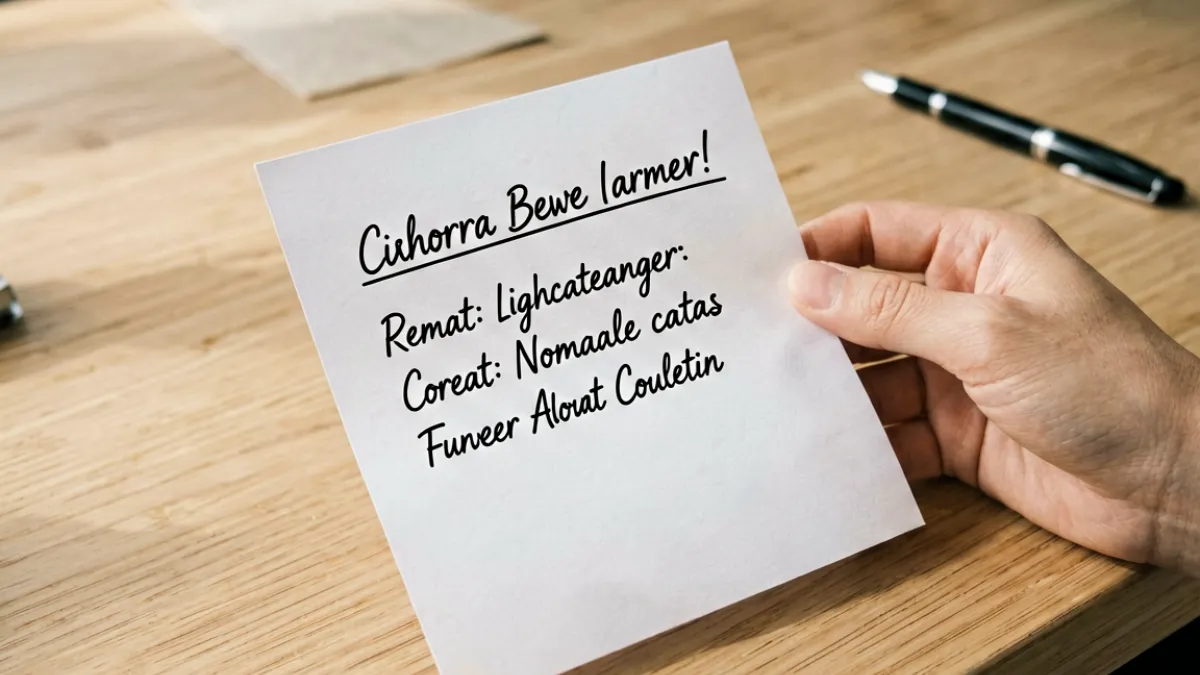 Cishorra Bewe larmer!
Remat: Lighcateanger:
Coreat: Nomaale catas
Funeer Alouat Couletin